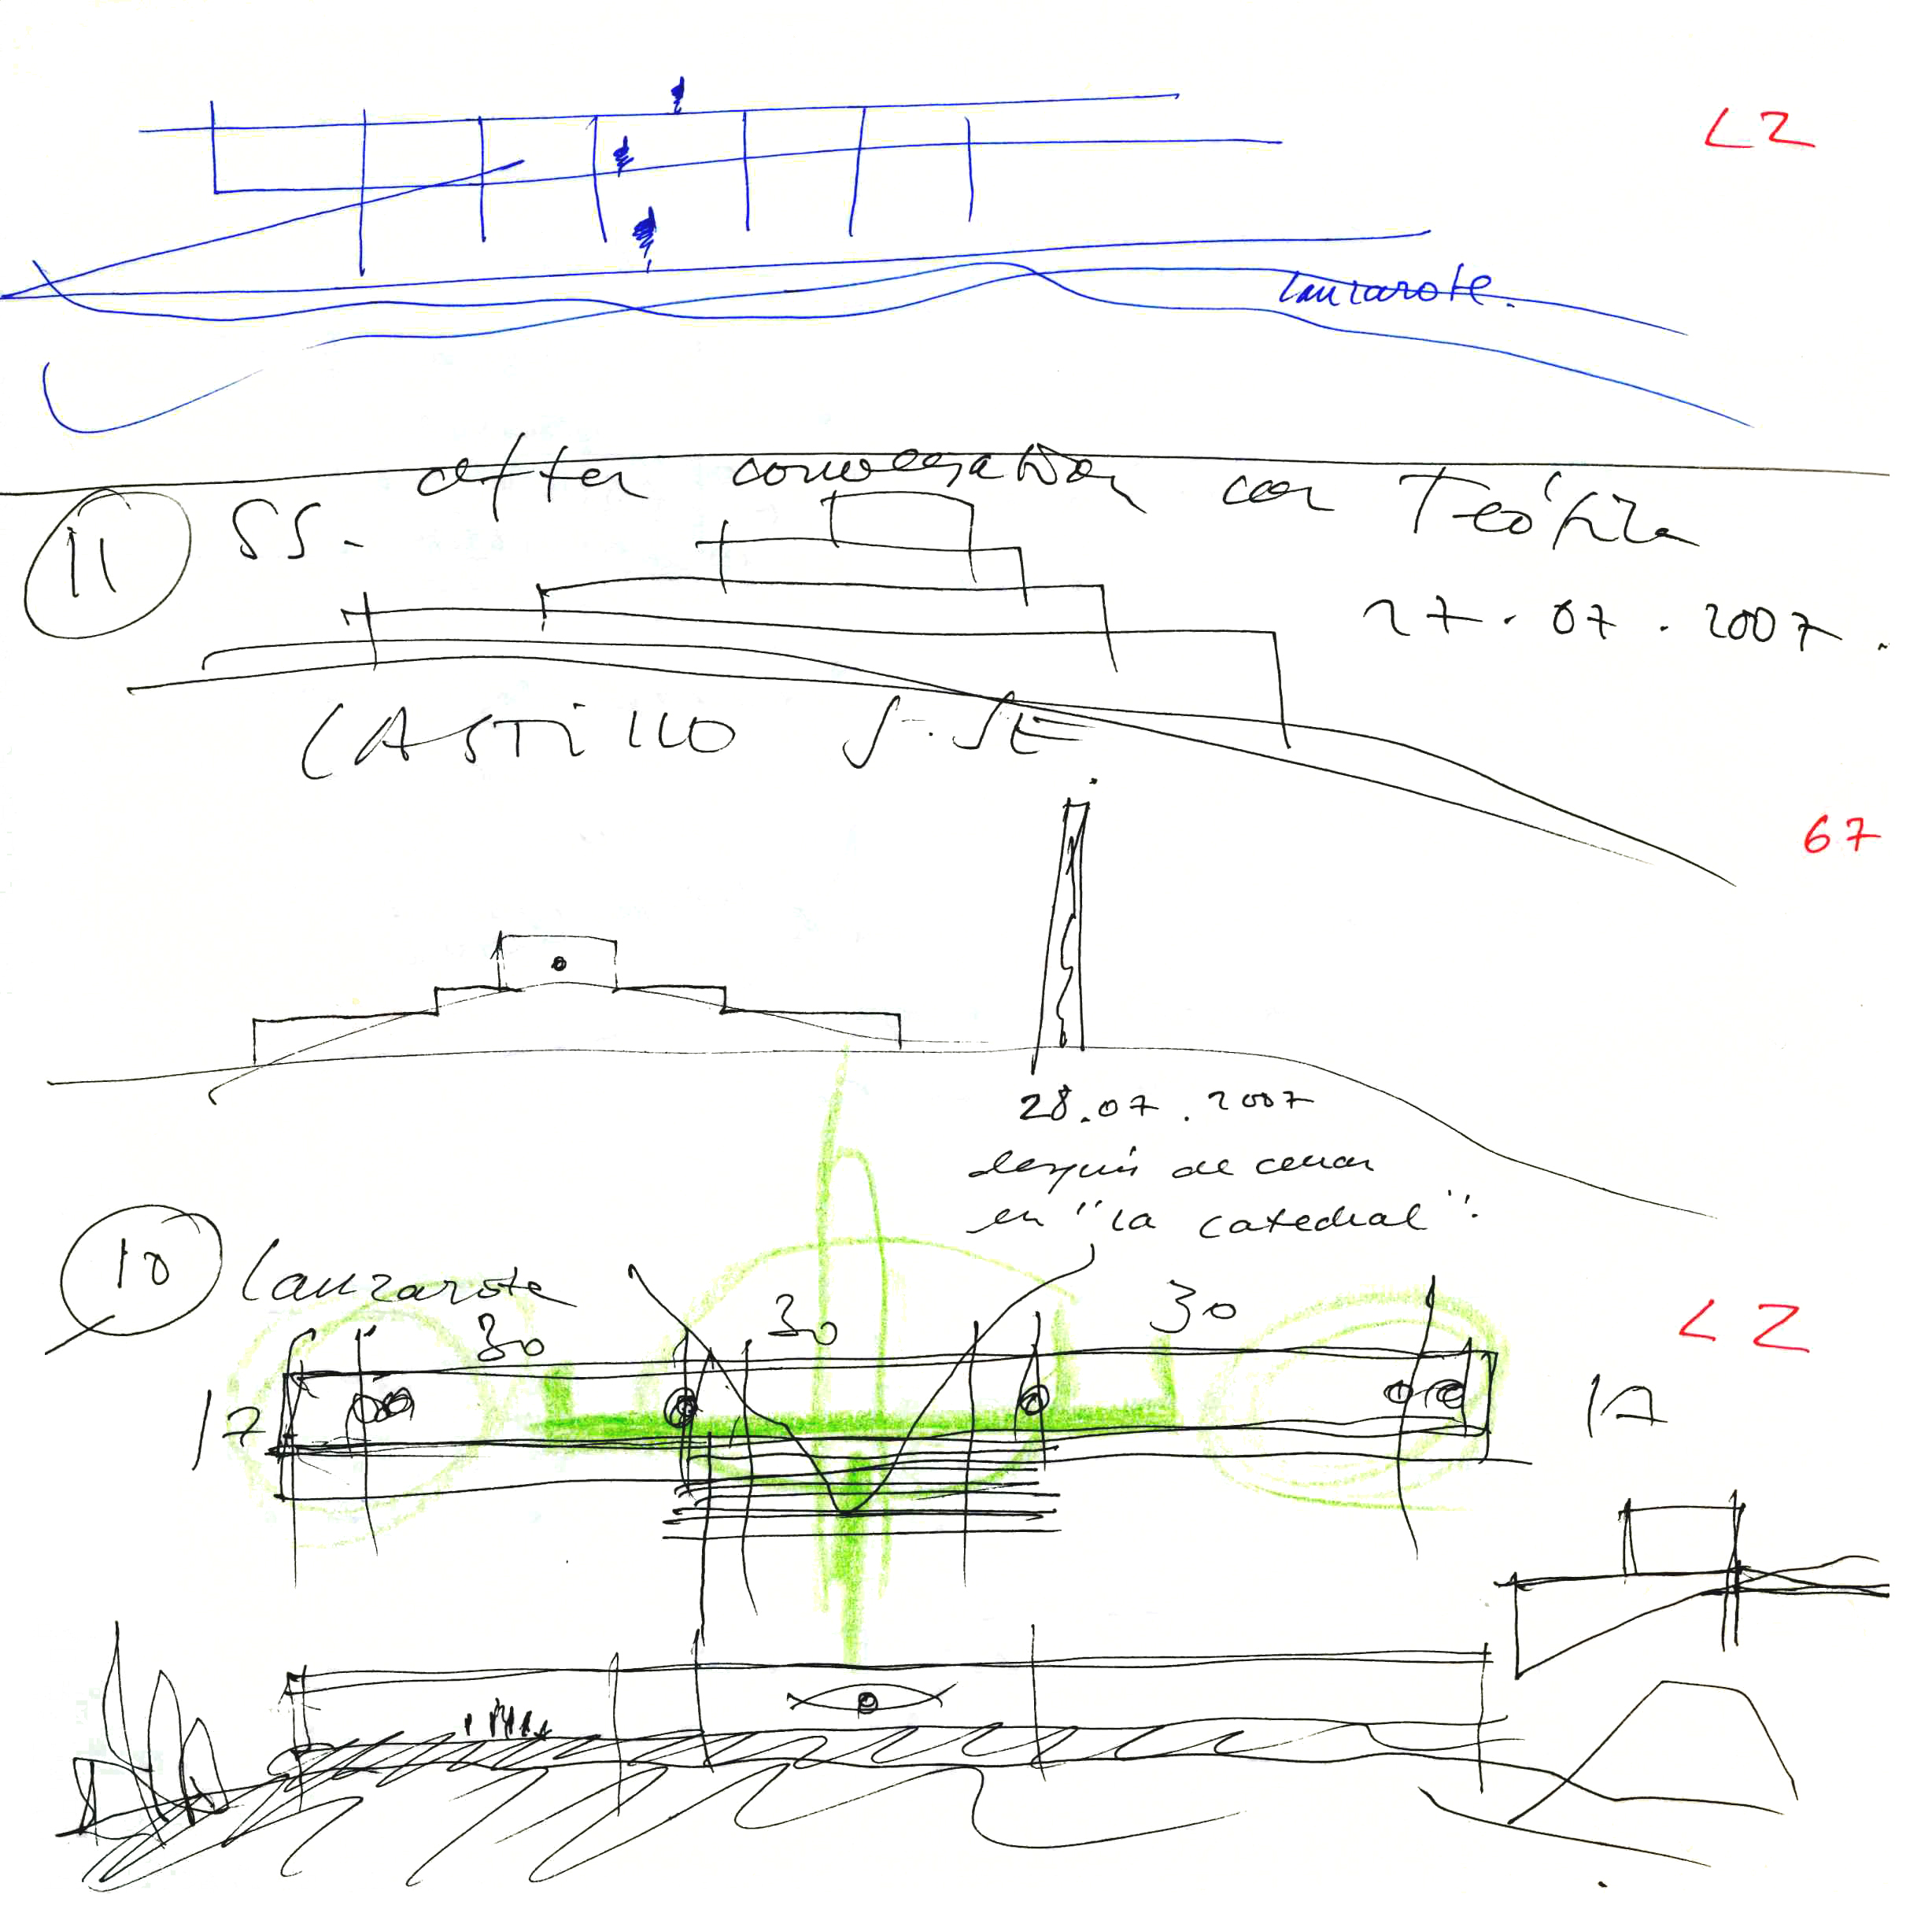 LZ
Lanzarote.
after conversation con Teófilo
11 SS.
27.07.2007.
CASTILLO S.SE
67
28.07.2007
después de cenar
en "la catedral".
10 Lanzarote
30 30 30
LZ
17 17